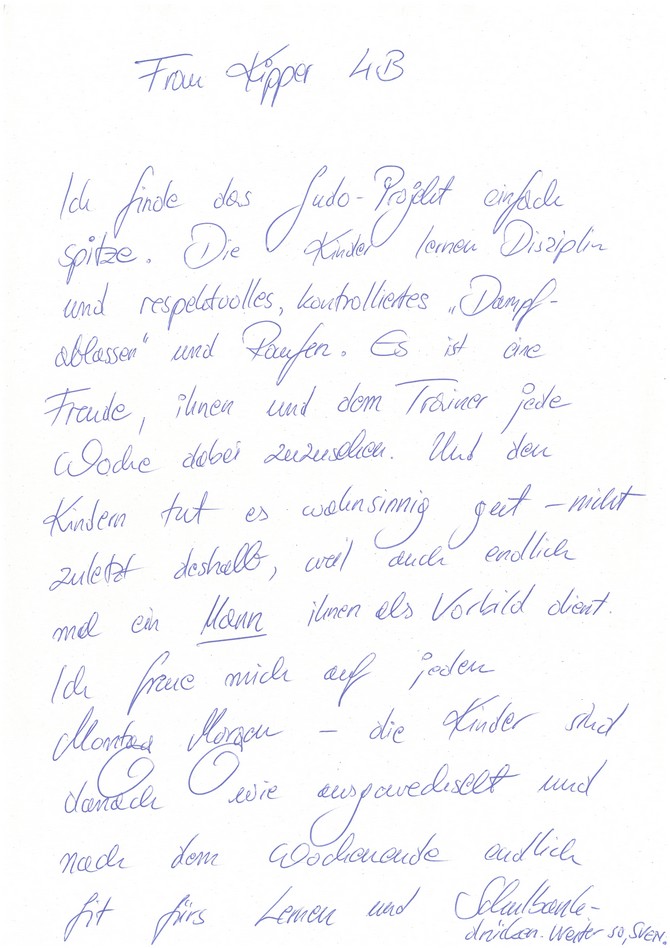 Frau Kipper 4B
Ich finde das Judo-Projekt einfach
spitze. Die Kinder lernen Disziplin
und respektvolles, kontrolliertes „Dampf-
ablassen" und Raufen. Es ist eine
Freude, ihnen und dem Trainer jede
Woche dabei zuzusehen. Und den
Kindern tut es wahnsinnig gut – nicht
zuletzt deshalb, weil auch endlich
mal ein Mann ihnen als Vorbild dient.
Ich freue mich auf jeden
Montag Morgen – die Kinder sind
danach wie ausgewechselt und
nach dem Wochenende endlich
fit fürs Lernen und Schulbank-
drücken. Weiter so, SVEN.